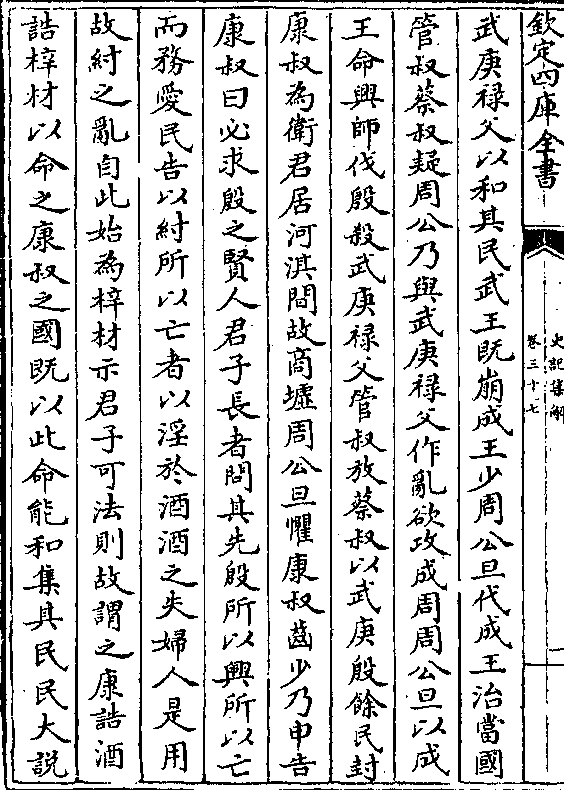 欽定四庫全書
史記集解
卷三十七
武庚禄父以和其民武王既崩成王少周公旦代成王治當國
管叔蔡叔疑周公乃與武庚禄父作亂欲攻成周周公旦以成
王命興師伐殷殺武庚禄父管叔放蔡叔以武庚殷餘民封
康叔為衛君居河淇間故商墟周公旦懼康叔齒少乃申告
康叔曰必求殷之賢人君子長者問其先殷所以興所以亡
而務愛民告以紂所以亡者以淫於酒酒之失婦人是用
故紂之亂自此始為梓材示君子可法則故謂之康誥酒
誥梓材以命之康叔之國既以此命能和集其民民大説